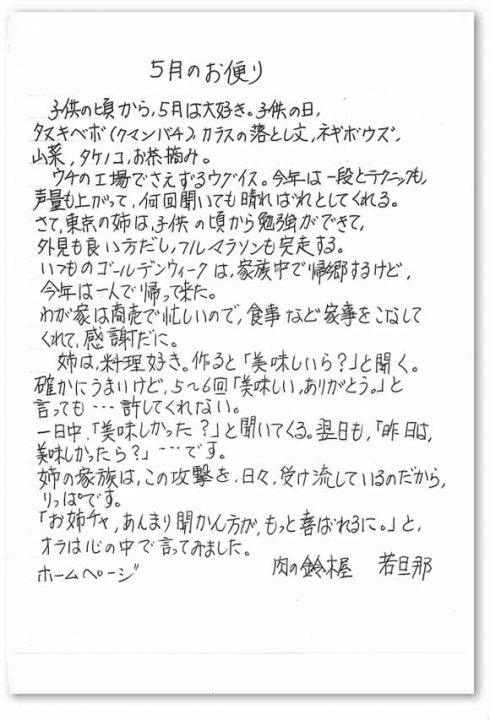 5月のお便り
子供の頃から，5月は大好き。子供の日，
タヌキベボ(クマンバチ)，カラスの落とし文，ネギボウズ，
山菜，タケノコ，お茶摘み。
ウチの工場でさえずるウグイス。今年は一段とテクニックも，
声量も上がって，何回聞いても晴ればれとしてくれる。
さて，東京の姉は，子供の頃から勉強ができて，
外見も良い方だし，フルマラソンも完走する。
いつものゴールデンウィークは，家族中で帰郷するけど，
今年は一人で帰って来た。
わが家は商売で忙しいので，食事など家事をこなして
くれて，感謝だに。
姉は，料理好き。作ると「美味しいら？」と聞く。
確かにうまいけど，5〜6回「美味しい，ありがとう。」と
言っても…許してくれない。
一日中，「美味しかった？」と聞いてくる。翌日も，「昨日は，
美味しかったら？」…です。
姉の家族は，この攻撃を，日々，受け流しているのだから，
りっぱです。
「お姉チャ，あんまり聞かん方が，もっと喜ばれるに。」と，
オラは心の中で言ってみました。
ホームページ 肉の鈴木屋 若旦那